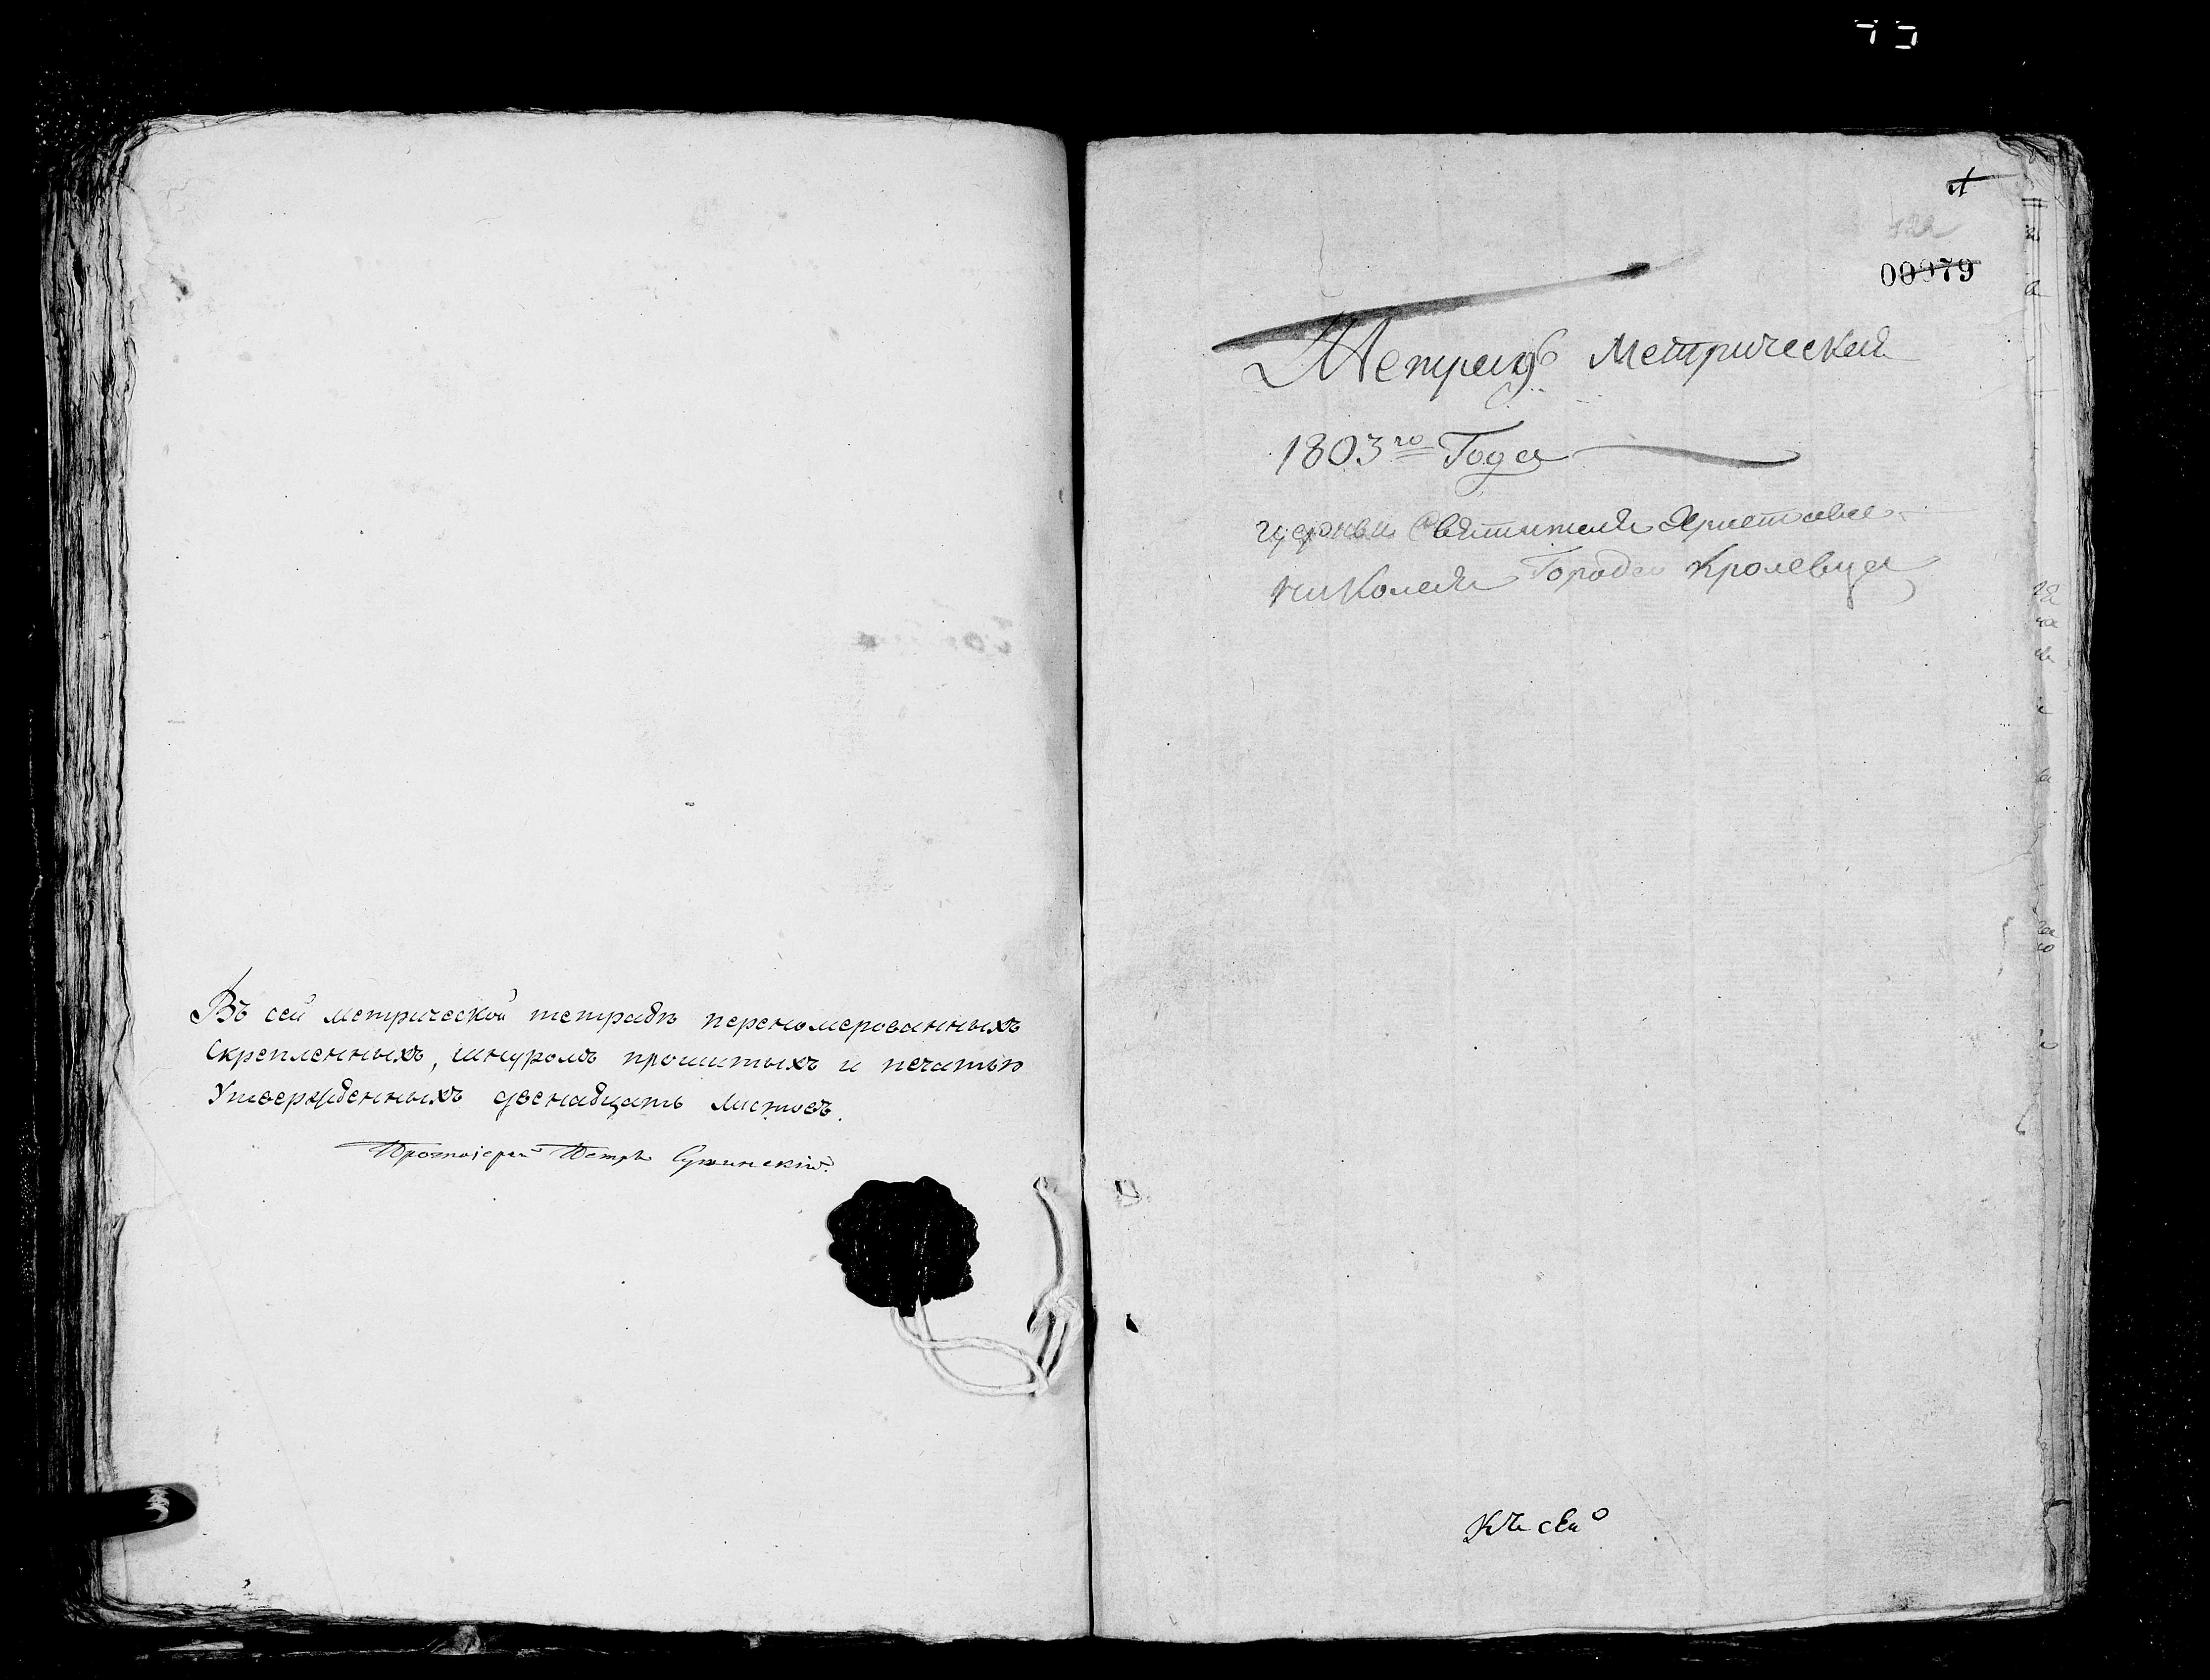 Въ сей метрической тетрадѣ переномерованныхъ
скрепленныхъ, шнуромъ прошитыхъ и печатью
Утвержденныхъ двенадцать листовъ.
Протоіерей Петръ
1
122
00979
Тетрадь Метрическая
1803го Года
церкви Святителя Христова
Николая Города Кролевца